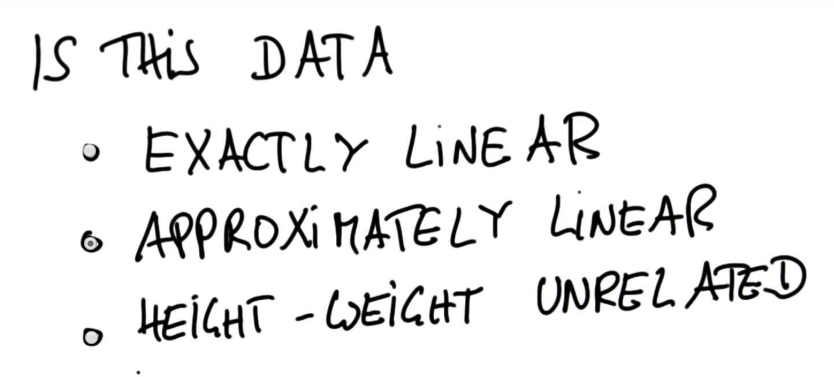 IS THIS DATA
EXACTLY LINEAR
APPROXIMATELY LINEAR
HEIGHT-WEIGHT UNRELATED